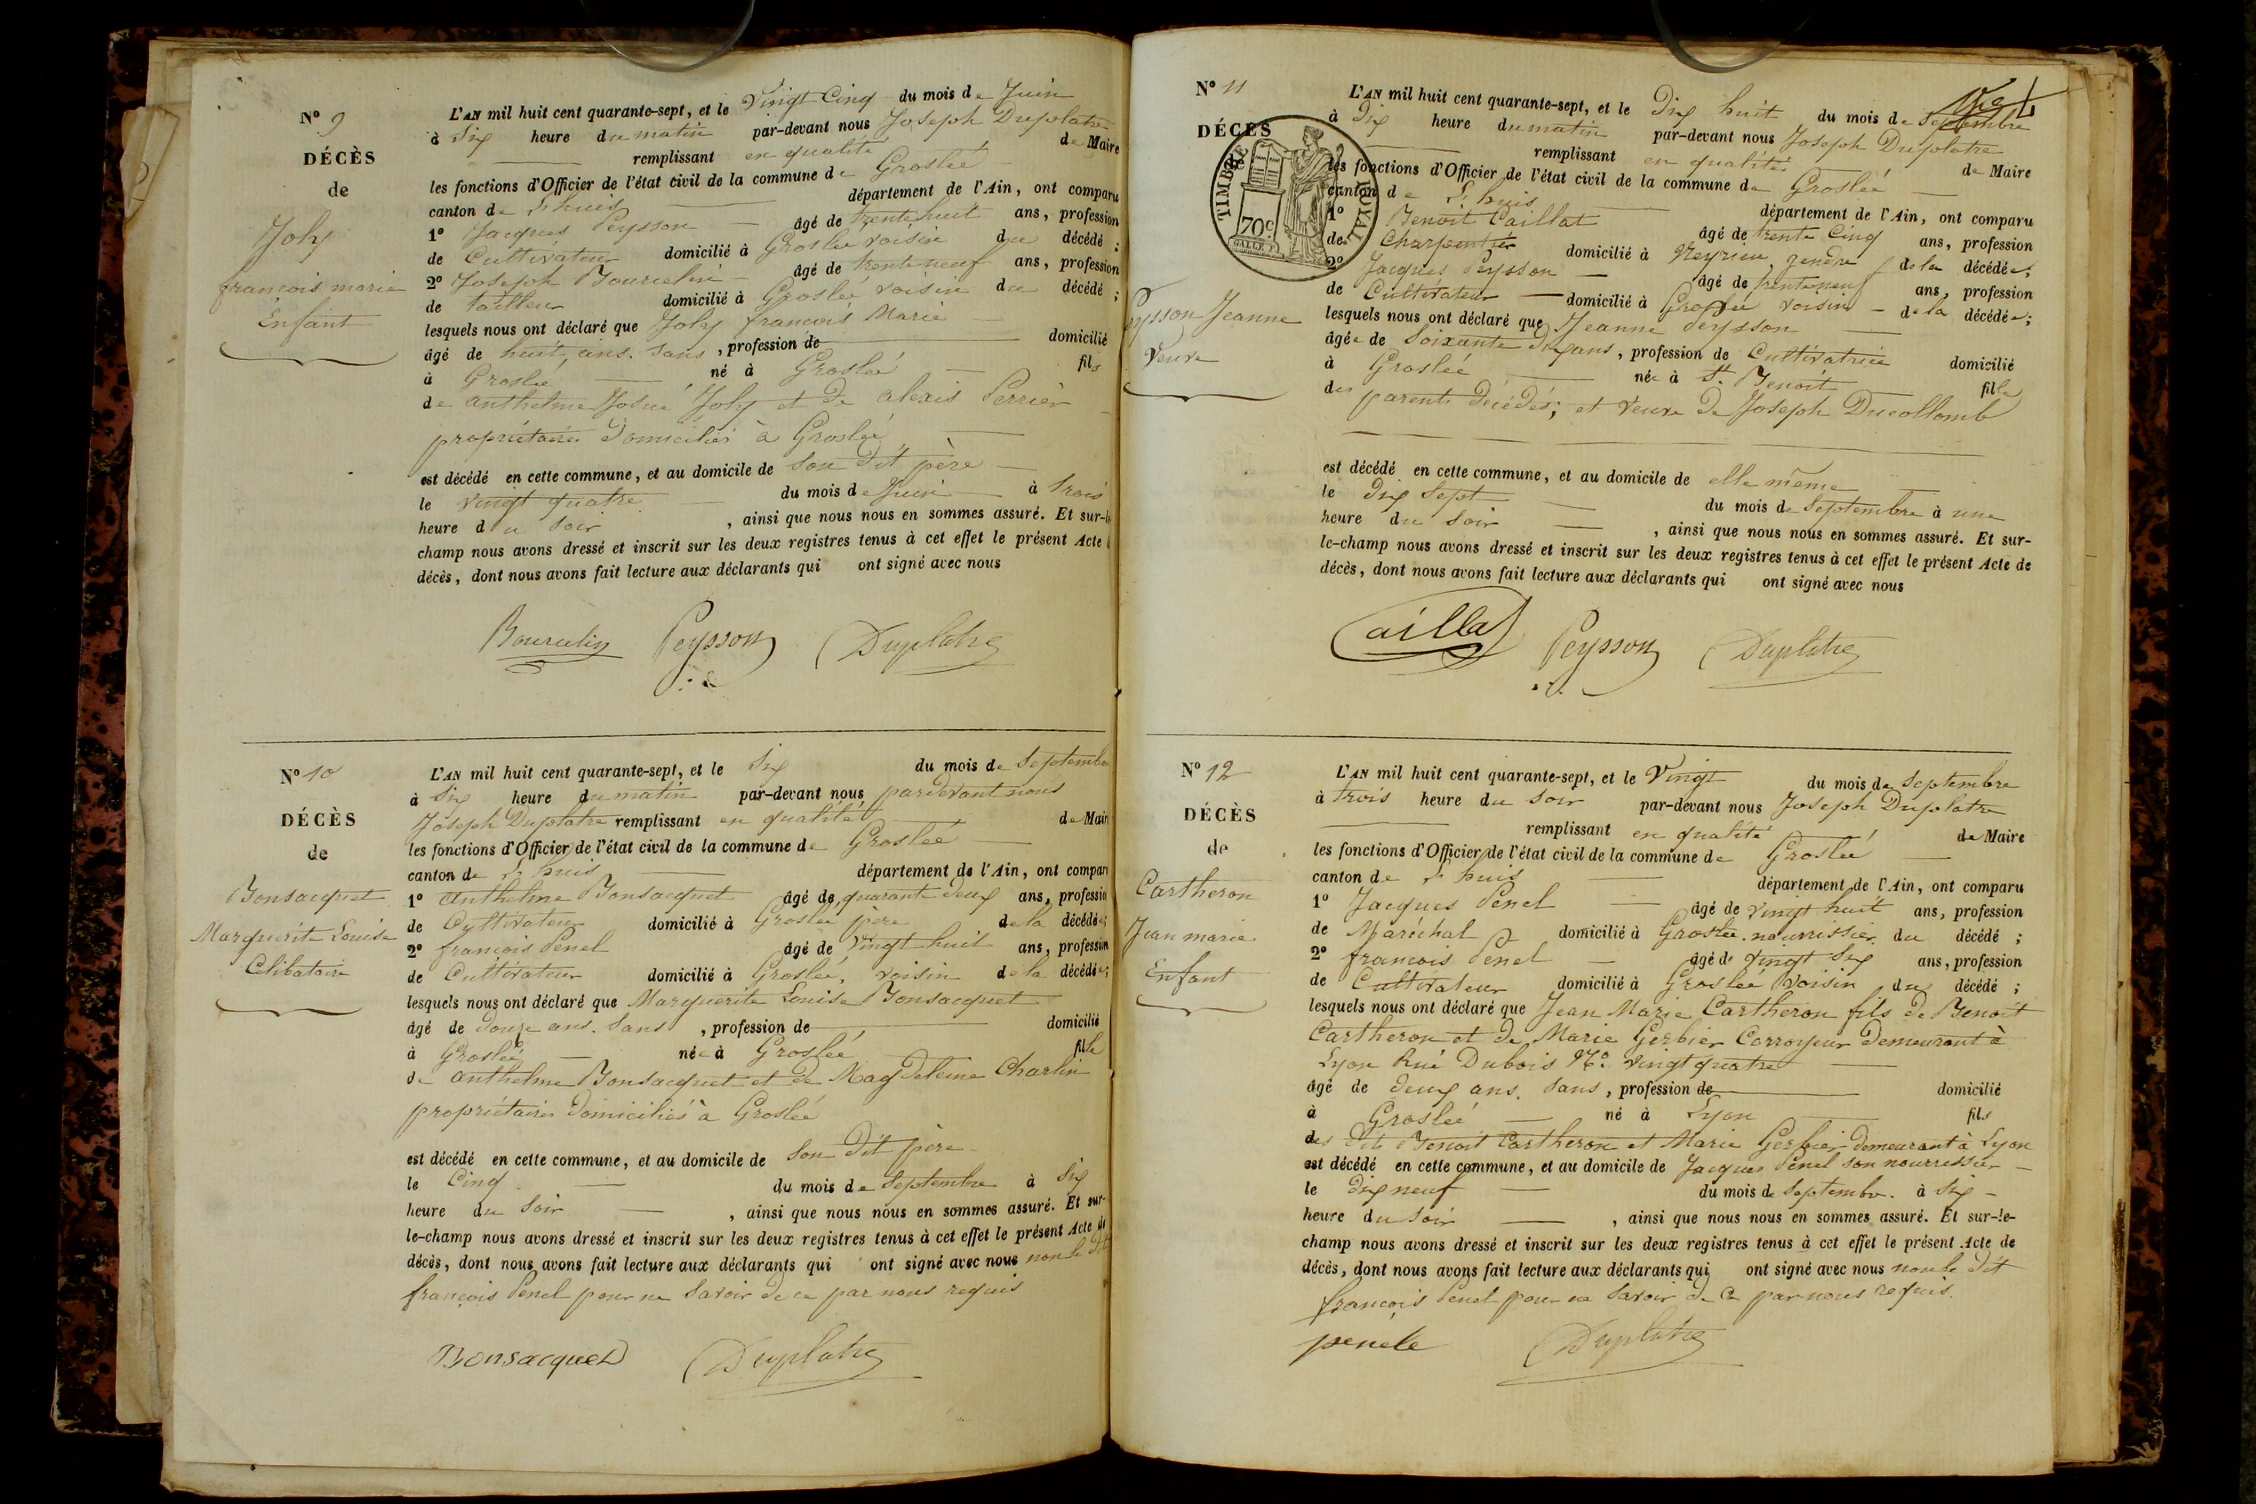 N° 9
DÉCÈS
de
Joly
françois marie
Enfant
L'AN mil huit cent quarante-sept, et le Vingt Cinq du mois de Juin
à Six heure du matin par-devant nous Joseph Duplatre
remplissant en qualité de Maire
les fonctions d'Officier de l'état civil de la commune de Groslée
canton de L'huis département de l'Ain, ont comparu
1° Jacques Peysson âgé de trente huit ans, profession
de Cultivateur domicilié à Groslée voisin du décédé ;
2° Joseph Bourcelin âgé de trente neuf ans, profession
de tailleur domicilié à Groslée voisin du décédé ;
lesquels nous ont déclaré que Joly francois Marie
âgé de huit ans. Sans , profession de domicilié
à Groslée né à Groslée fils
de anthelme Josué Joly et de alexis Perrier
propriétaires domiciliés à Groslée
est décédé en cette commune, et au domicile de son dit père
le vingt quatre du mois de Juin à trois
heure du soir , ainsi que nous nous en sommes assuré. Et sur-le
champ nous avons dressé et inscrit sur les deux registres tenus à cet effet le présent Acte
décès, dont nous avons fait lecture aux déclarants qui ont signé avec nous
Bourcelin Peysson Duplatre
N° 10
DÉCÈS
de
Bonsacquet
Marguerite Louise
Célibataire
L'AN mil huit cent quarante-sept, et le Six du mois de Septembre
à Six heure du matin par-devant nous pardevant nous
Joseph Duplatre remplissant en qualité de Maire
les fonctions d'Officier de l'état civil de la commune de Groslée
canton de L'huis département de l'Ain, ont comparu
1° anthelme Bonsacquet âgé de quarante deux ans, profession
de Cultivateur domicilié à Groslée père de la décédée;
2° françois Penel âgé de vingt huit ans, profession
de Cultivateur domicilié à Groslée, voisin de la décédée;
lesquels nous ont déclaré que Marguerite Louise Bonsacquet
âgé de douze ans. Sans , profession de domicilié
à Groslée née à Groslée fille
de anthelme Bonsacquet et de Magdeleine Charlin
propriétaires domiciliés à Groslée
est décédé en cette commune, et au domicile de son dit père
le Cinq du mois de Septembre à Six
heure du soir , ainsi que nous nous en sommes assuré. Et sur-
le-champ nous avons dressé et inscrit sur les deux registres tenus à cet effet le présent Acte de
décès, dont nous avons fait lecture aux déclarants qui ont signé avec nous non le dit
françois Penel pour ne savoir de ce par nous requis
Bonsacquet Duplatre
N° 11
DÉCES
de
TIMBRE ROYAL
70c
Peysson Jeanne
Veuve
L'AN mil huit cent quarante-sept, et le Dix huit du mois de Septembre
à Dix heure du matin par-devant nous Joseph Duplatre
remplissant en qualité de Maire
les fonctions d'Officier de l'état civil de la commune de Groslée
canton de L'huis département de l'Ain, ont comparu
1° Benoit Caillat âgé de trente Cinq ans, profession
de Charpentier domicilié à Meyrieu gendre de la décédée;
2° Jacques Peysson âgé de trente neuf ans, profession
de Cultivateur domicilié à Groslée voisin de la décédée;
lesquels nous ont déclaré que Jeanne Peysson
âgée de Soixante dix ans, profession de Cultivatrice domicilié
à Groslée née à St. Benoit fille
des parents décédés; et veuve de Joseph Ducollomb
est décédé en cette commune, et au domicile de elle même
le dix Sept du mois de Septembre à une
heure du soir , ainsi que nous nous en sommes assuré. Et sur-
le-champ nous avons dressé et inscrit sur les deux registres tenus à cet effet le présent Acte de
décès, dont nous avons fait lecture aux déclarants qui ont signé avec nous
Caillat Peysson Duplatre
N° 12
DÉCÈS
de
Cartheron
Jean marie
Enfant
L'AN mil huit cent quarante-sept, et le Vingt du mois de Septembre
à trois heure du soir par-devant nous Joseph Duplatre
remplissant en qualité de Maire
les fonctions d'Officier de l'état civil de la commune de Groslée
canton de L'huis département de l'Ain, ont comparu
1° Jacques Penel âgé de vingt huit ans, profession
de Maréchal domicilié à Groslée. nourrissier du décédé ;
2° francois Penel âgé de vingt Six ans, profession
de Cultivateur domicilié à Groslée voisin du décédé ;
lesquels nous ont déclaré que Jean Marie Cartheron fils de Benoit
Cartheron et de Marie Gerbier Corroyeur demeurant à
Lyon Rue Dubois N°. vingt quatre
âgé de deux ans. Sans , profession de domicilié
à Groslée né à Lyon fils
des dits Benoit Cartheron et Marie Gerbier demeurant à Lyon
est décédé en cette commune, et au domicile de Jacques Penel son nourrissier
le dix neuf du mois de Septembre. à Six
heure du soir , ainsi que nous nous en sommes assuré. Et sur-le-
champ nous avons dressé et inscrit sur les deux registres tenus à cet effet le présent Acte de
décès, dont nous avons fait lecture aux déclarants qui ont signé avec nous non le dit
françois Penel pour ne savoir de ce par nous requis.
penele Duplatre